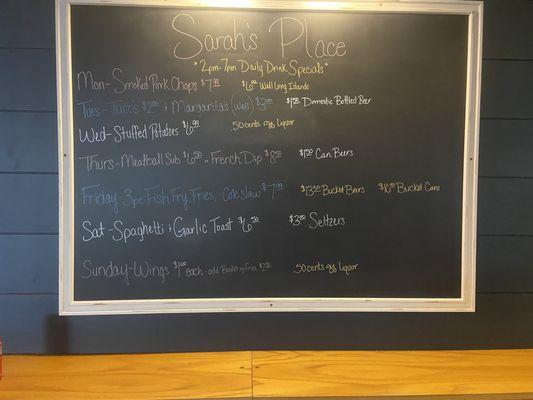 Sarah's Place
*2pm-7pm Daily Drink Specials*
Mon- Smoked Pork Chops $7.99 $6.00 Well Long Islands
Tues-Tacos $2.00 & Margaritas (well) $3.00 Domestic Bottled Bar
Wed-Stuffed Potatoes $6.99 50 cents off Liquor
Thurs-Meatball Sub $6.50 - French Dip $8.50 $1.50 Can Beers
Friday 3pc Fish Fry, Fries, Coleslaw $7.99 $13.50 Bucket Bars $10.00 Bucket Cans
Sat-Spaghetti & Garlic Toast $6.50 $3.00 Seltzers
Sunday-Wings each - add Basket of Fries 50 cents off Liquor